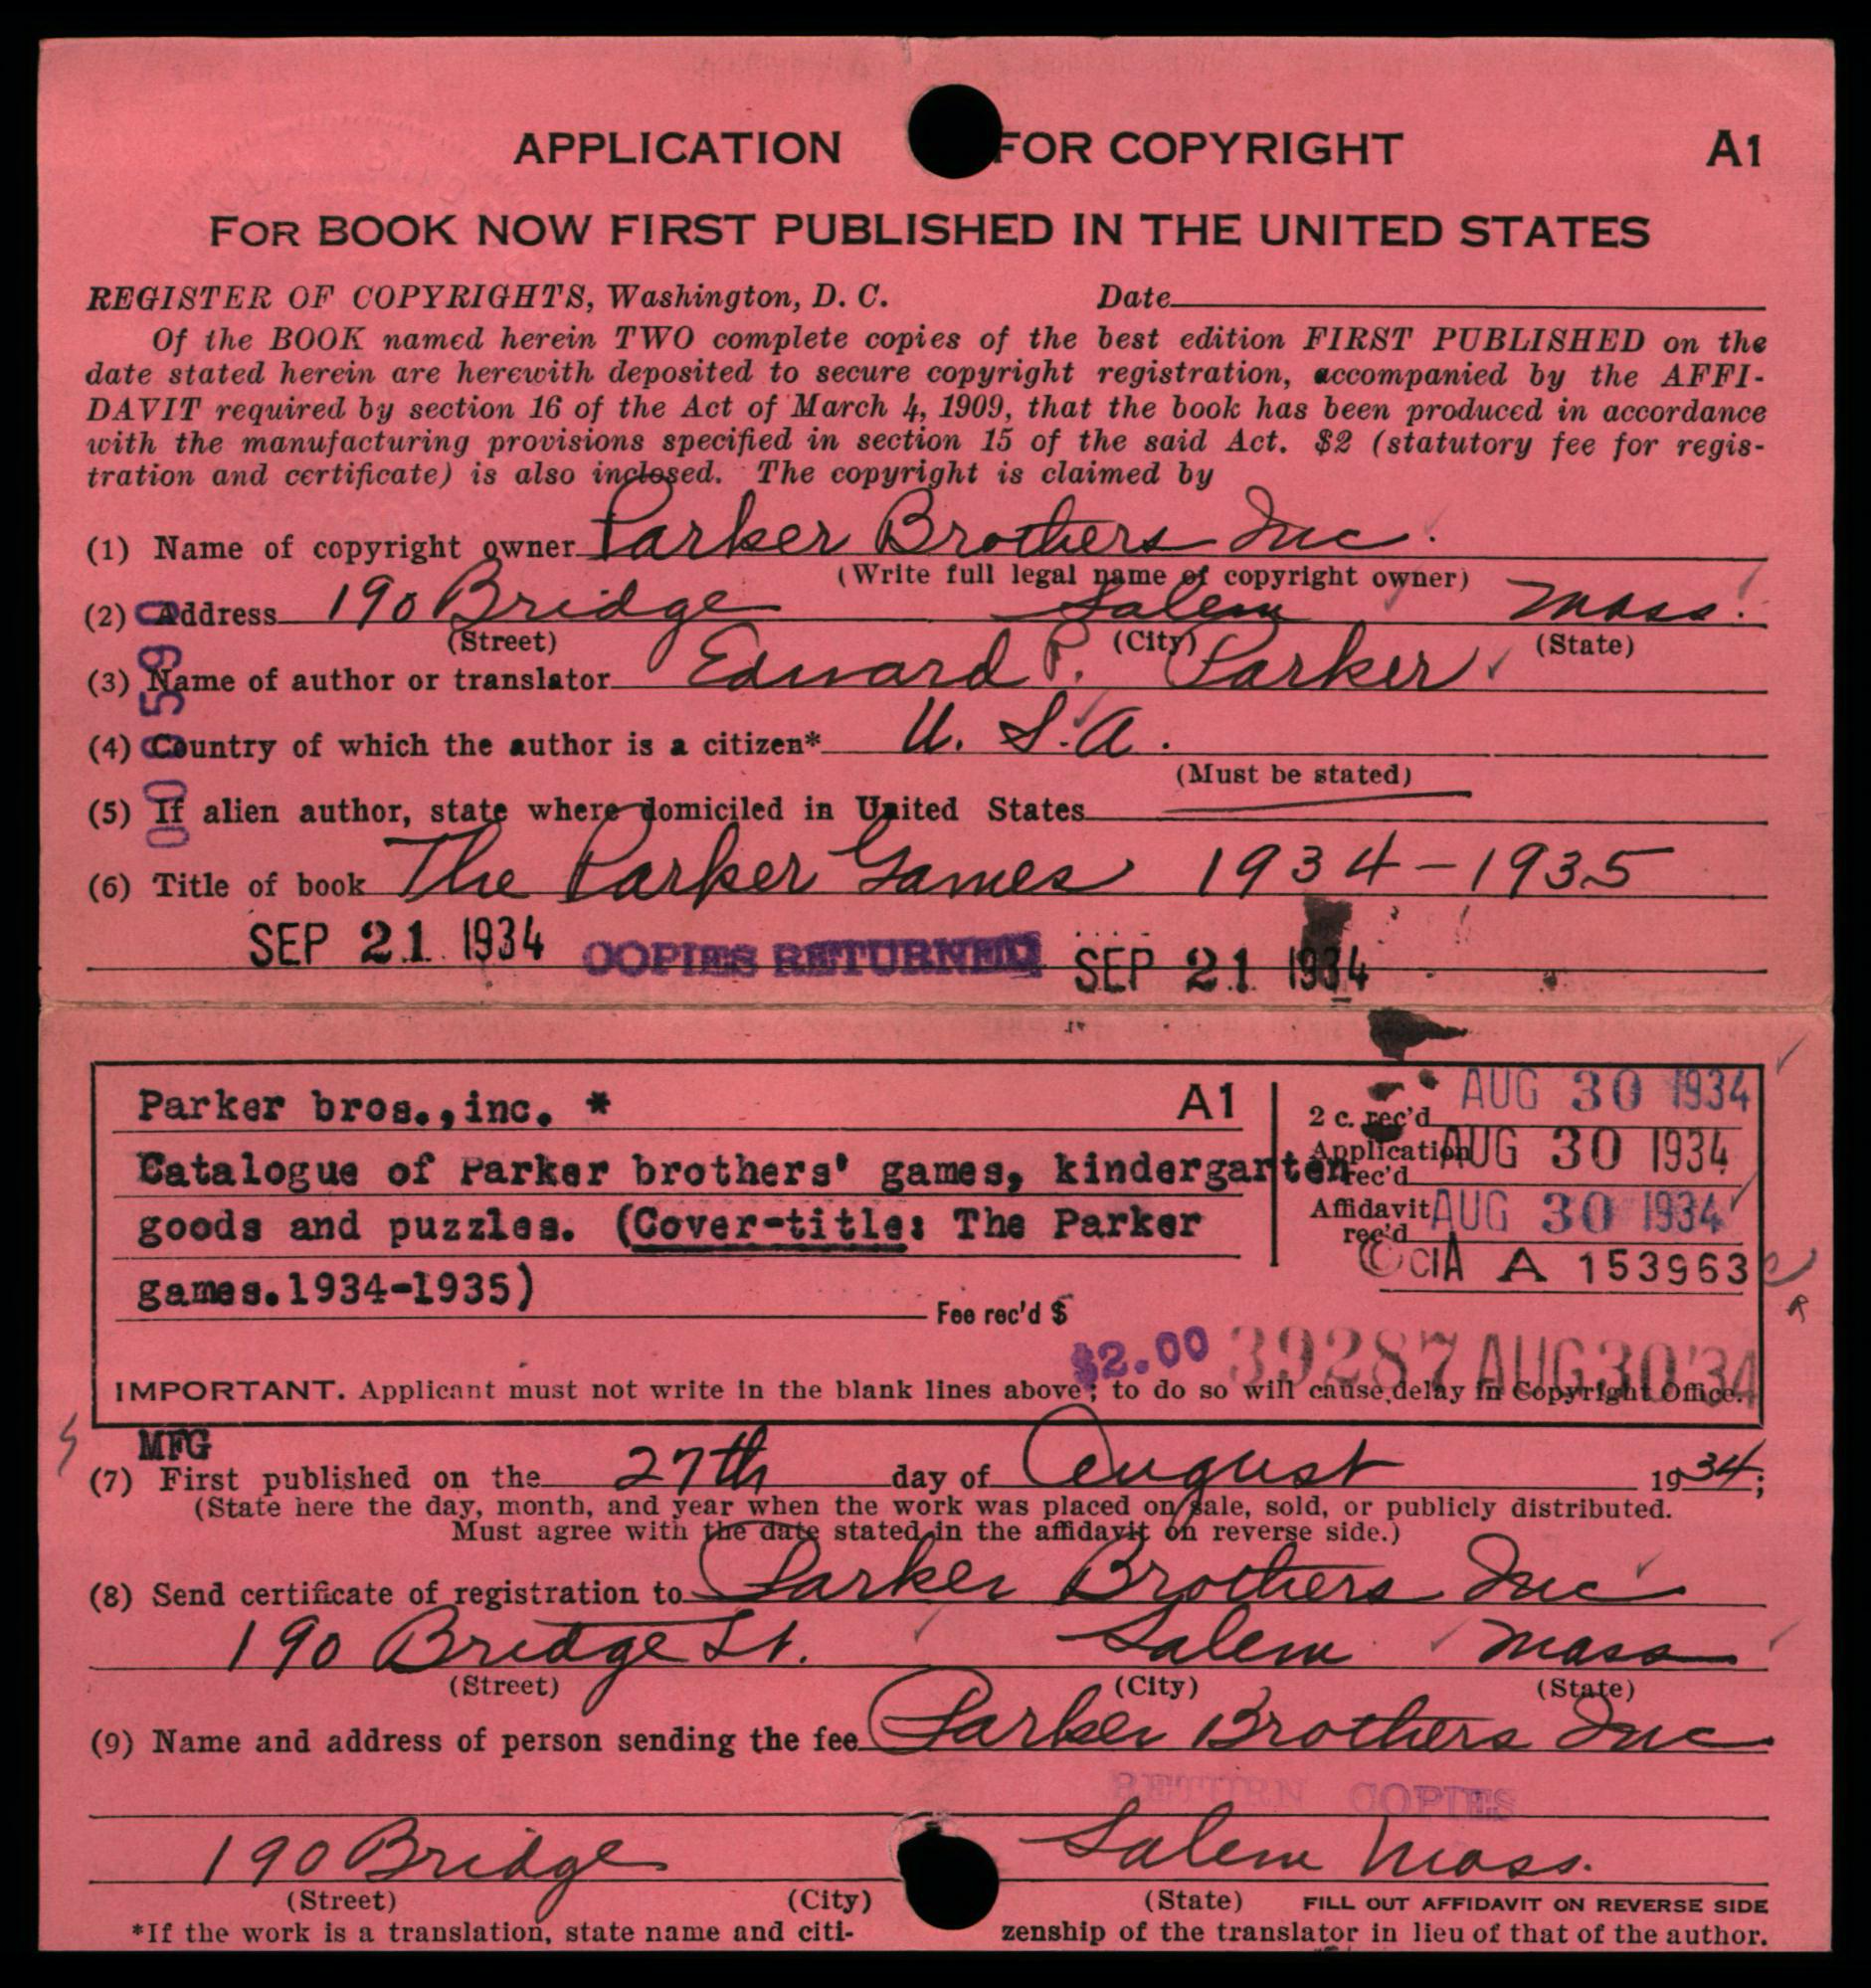 APPLICATION FOR COPYRIGHT A1
FOR BOOK NOW FIRST PUBLISHED IN THE UNITED STATES
REGISTER OF COPYRIGHTS, Washington, D. C. Date
Of the BOOK named herein TWO complete copies of the best edition FIRST PUBLISHED on the
date stated herein are herewith deposited to secure copyright registration, accompanied by the AFFI-
DAVIT required by section 16 of the Act of March 4, 1909, that the book has been produced in accordance
with the manufacturing provisions specified in section 15 of the said Act. $2 (statutory fee for regis-
tration and certificate) is also inclosed. The copyright is claimed by
(1) Name of copyright owner Parker Brothers Inc.
(Write full legal name of copyright owner)
(2) Address 190 Bridge Salem Mass.
(Street) (City) (State)
(3) Name of author or translator Edward P. Parker
(4) Country of which the author is a citizen* U. S. A.
(Must be stated)
(5) If alien author, state where domiciled in United States
(6) Title of book The Parker Games 1934-1935
SEP 21 1934 COPIES RETURNED SEP 21 1934
Parker bros.,inc. * A1
2 c. rec'd AUG 30 1934
Catalogue of Parker brothers' games, kindergarten
Application rec'd AUG 30 1934
goods and puzzles. (Cover-title: The Parker
Affidavit rec'd AUG 30 1934
©CIA A 153963
games.1934-1935)
Fee rec'd $
$2.00 39287 AUG 30 '34
IMPORTANT. Applicant must not write in the blank lines above; to do so will cause delay in Copyright Office.
MFG
(7) First published on the 27th day of August 1934;
(State here the day, month, and year when the work was placed on sale, sold, or publicly distributed.
Must agree with the date stated in the affidavit on reverse side.)
(8) Send certificate of registration to Parker Brothers Inc
190 Bridge St. Salem Mass
(Street) (City) (State)
(9) Name and address of person sending the fee Parker Brothers Inc
RETURN COPIES
190 Bridge Salem Mass.
(Street) (City) (State) FILL OUT AFFIDAVIT ON REVERSE SIDE
*If the work is a translation, state name and citi- zenship of the translator in lieu of that of the author.